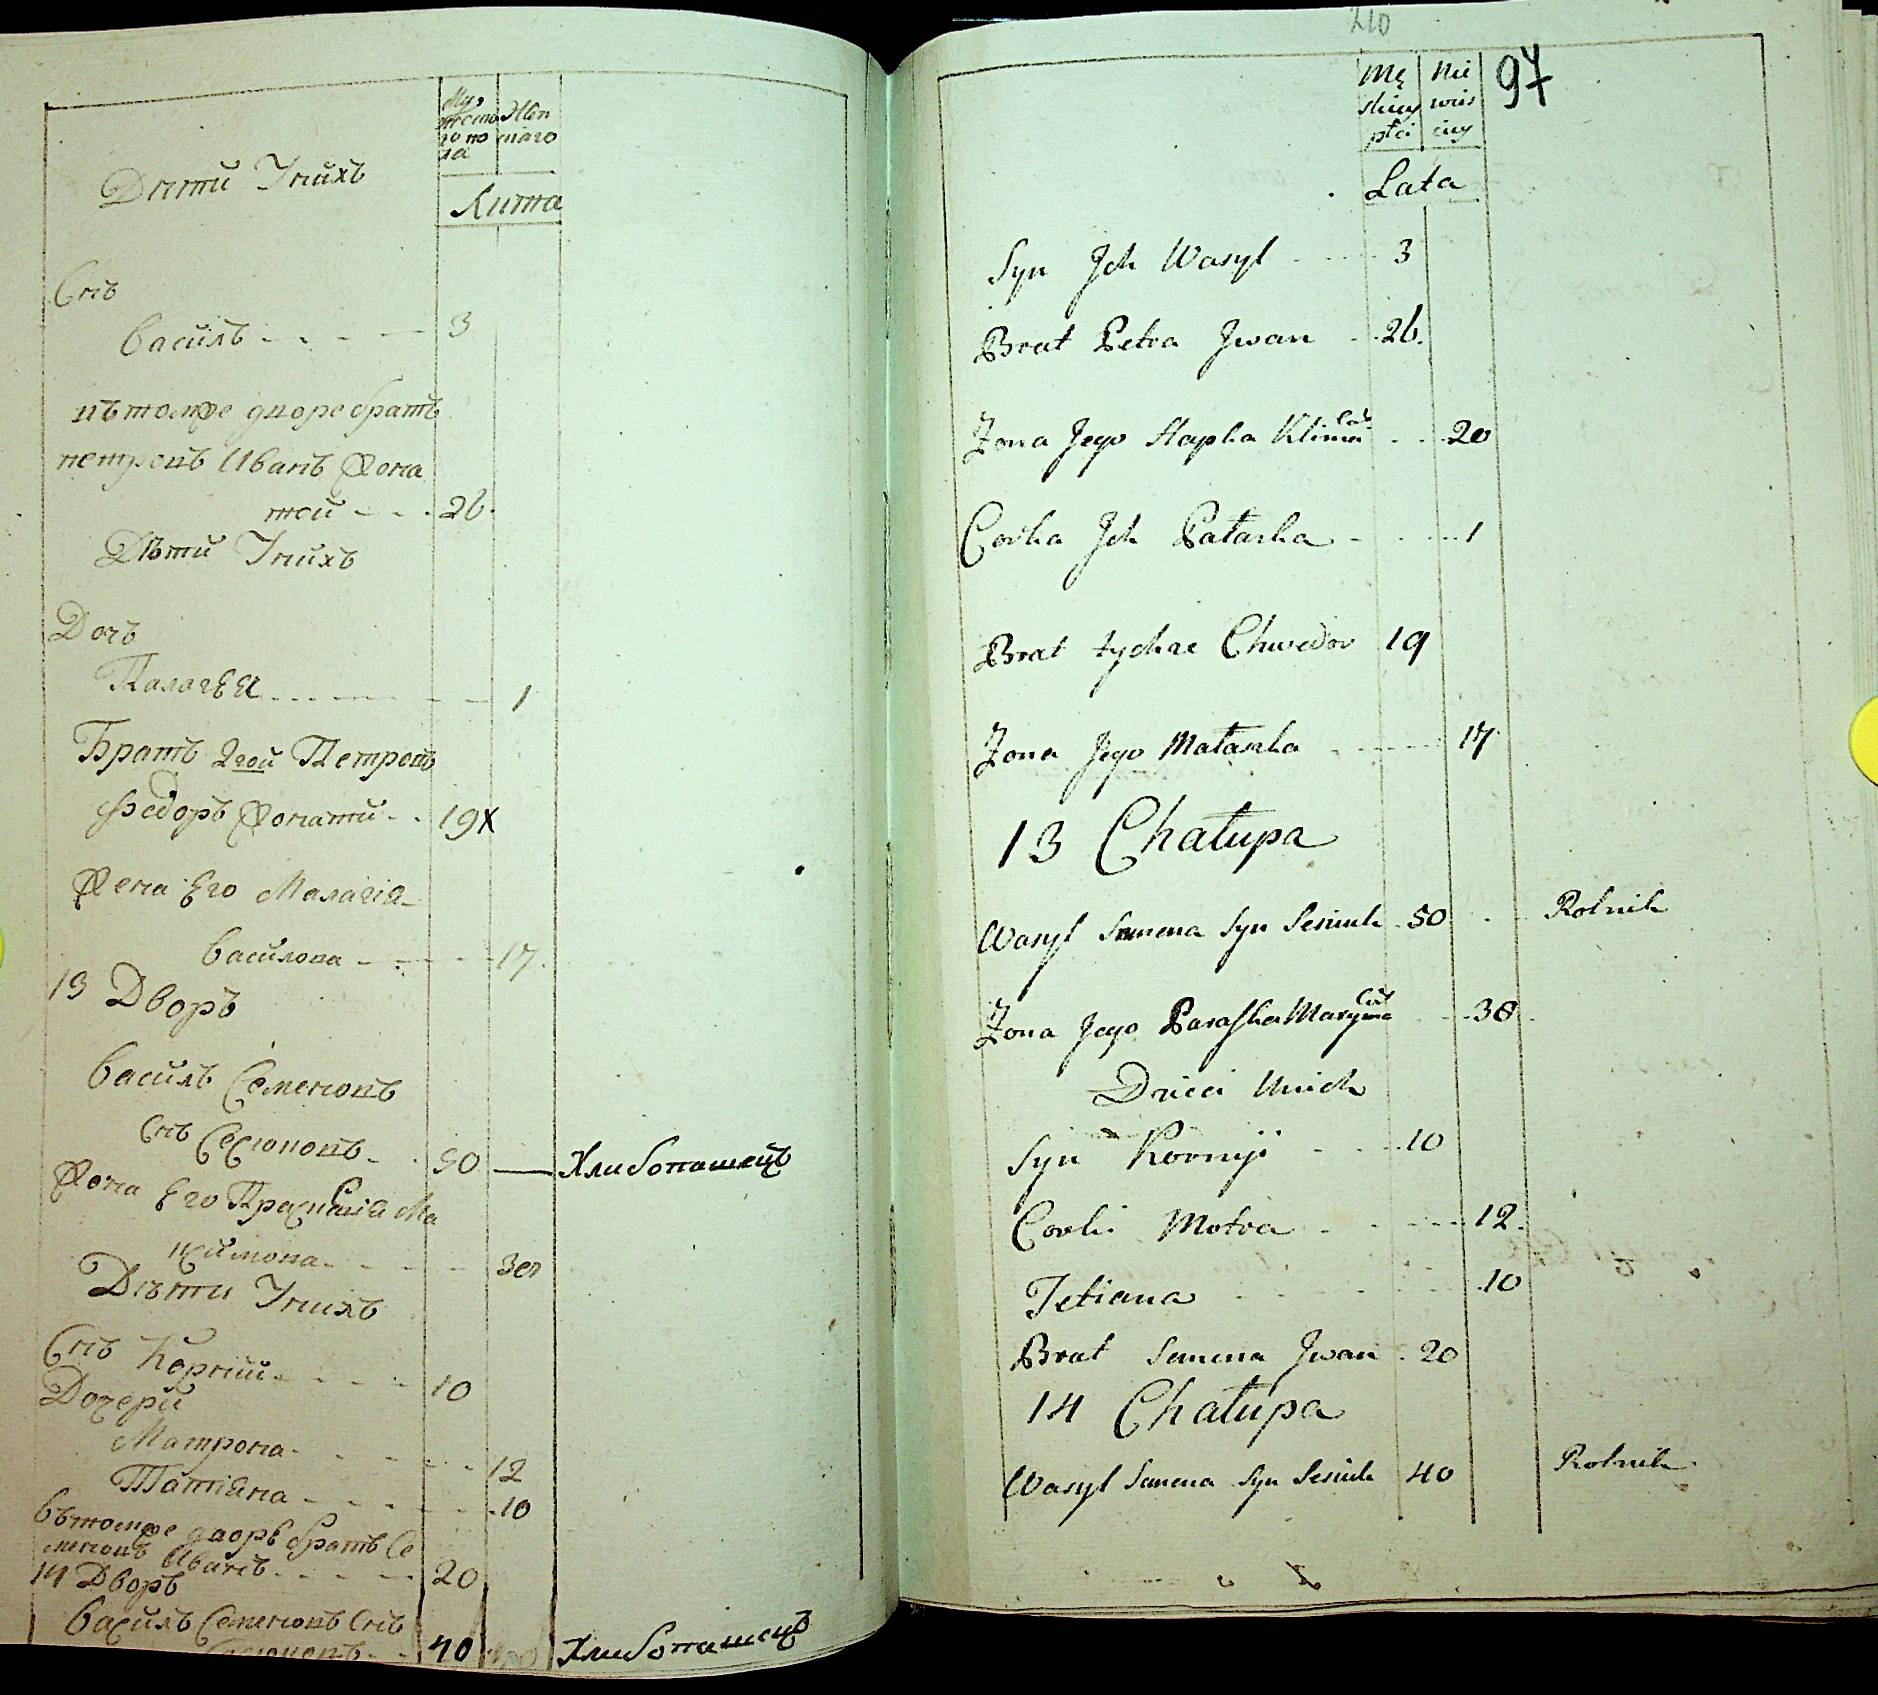 Мужеска го пола
Жен скаго
Дѣти Унихъ
Лита
Снъ
Василъ 3
вътомже дворе братъ
петровъ Иванъ Жона
той 26
Дѣти Унихъ
Дочъ
Палагея 1
Братъ 2гой Петровъ
Федоръ Жонати 19х
Жена Его Малагія
Василова 17
13 Дворъ
Василъ Семеновъ
Снъ 50 Хлибопашецъ
Жона Его Ма
38
Дѣти Унихъ
Снъ Корній 10
Дочери
Матрона 12
Татіяна 10
Вътомже дворѣ братъ Се
меновъ Иванъ 20
14 Дворъ
Василъ Семеновъ Снъ
40 Хлибопашецъ
210
97
Mę skiey płci
Nie wies ciey
Lata
Syn Jch Wasyl 3
Brat Petra Jwan 26
Zona Jego Hapka Klima Cór. 20
Corka Jch Pałaszka 1
Brat tychże Chwedor 19
Zona Jego Małaszka 17
13 Chałupa
Wasyl Semena Syn Sesiuk 50 Rolnik
Zona Jego Paraska Maxyma Cór 38
Dzieci Unich
Syn Korniy 10
Corki Motra 12
Tetiana 10
Brat Semena Jwan 20
14 Chałupa
Wasyl Semena Syn Sesiuk 40 Rolnik